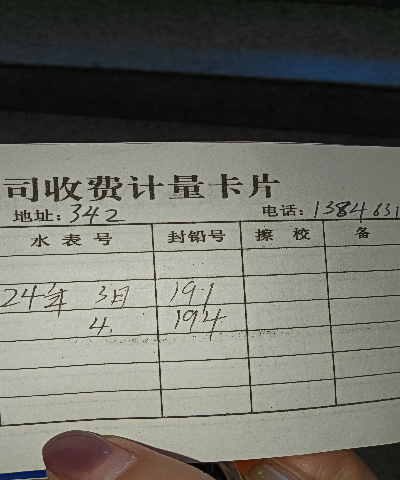 司收费计量卡片
地址: 342 电话: 1384631
水表号 封铅号 擦校 备
24年 3月 191
4. 194